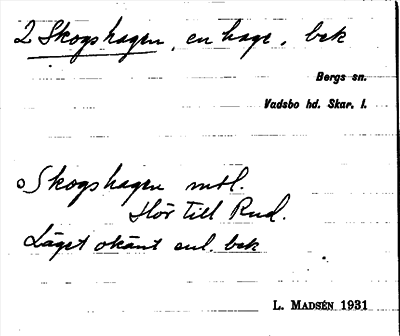 2 Skogshagen, en hage, bek
Bergs sn.
Vadsbo hd. Skar. l.
Skogshagen mtl.
Hör till Rud.
Läget okänt enl. bek
L. MADSÉN 1931